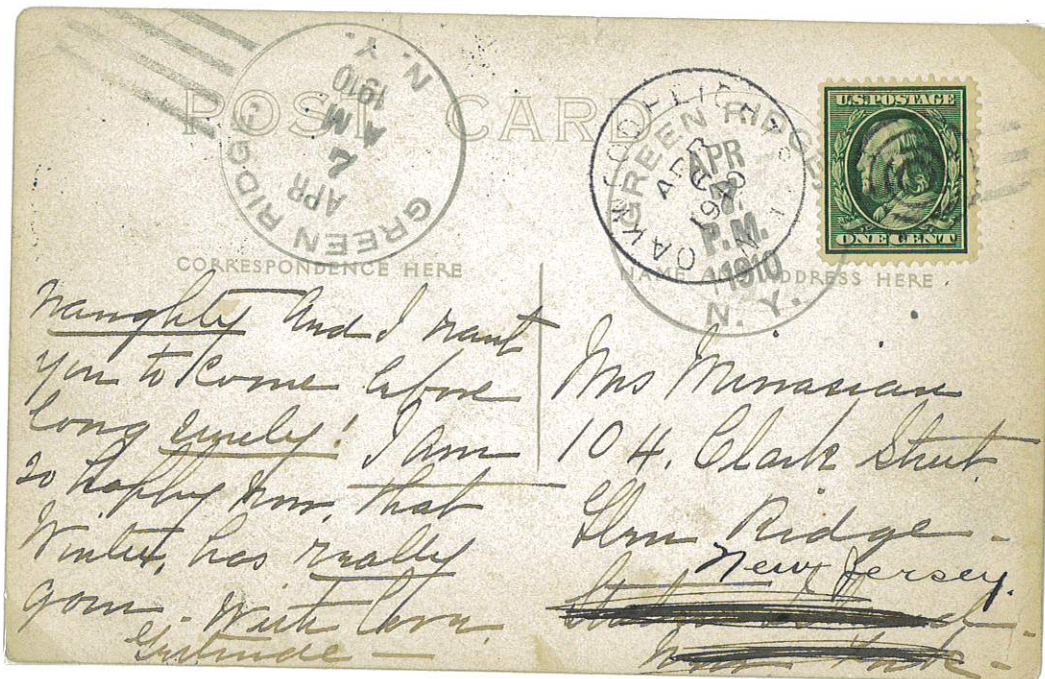 POST CARD
GREEN RIDGE
APR
7
AM
1910
N. Y.
OAKWOOD HEIGHTS
APR
1910
N
GREEN RIDGE,
APR
P.M.
1910
N. Y.
U.S. POSTAGE
ONE CENT
CORRESPONDENCE HERE
NAME AND ADDRESS HERE
naughty And I want
you to Come before
long surely! I am
so happy now, that
Winter, has really
gone. With love,
Gertrude —
Mrs Minasian
104, Clark Street
Glen Ridge -
New Jersey.
Staten Island -
New York -